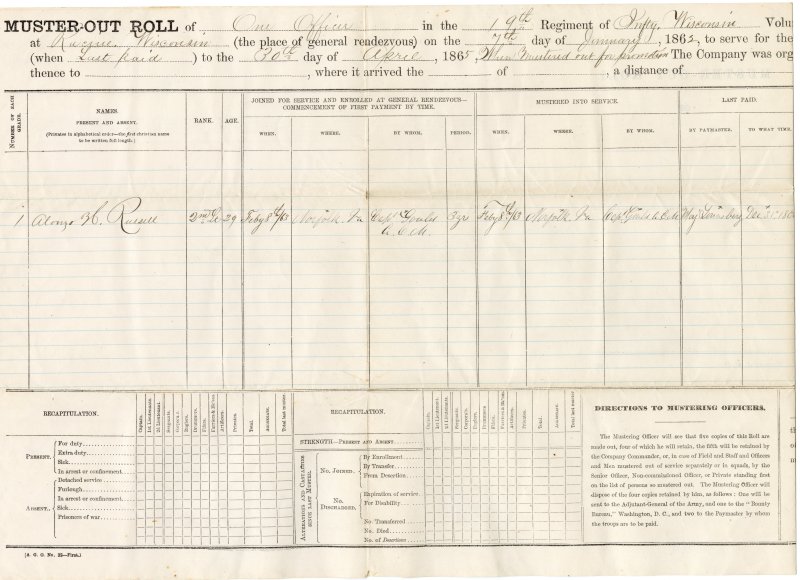 MUSTER-OUT ROLL of One Officer in the 19th Regiment of Infty Wisconsin Volu
at Racine Wisconsin (the place of general rendezvous) on the 7th day of January, 1862, to serve for the
(when Last Paid ) to the 30th day of April, 1865 When mustered out for promotion The Company was org
thence to , where it arrived the of , a distance of
NUMBER OF EACH GRADE.
NAMES.
PRESENT AND ABSENT.
(Privates in alphabetical order—the first christian name
to be written full length.)
RANK.
AGE.
JOINED FOR SERVICE AND ENROLLED AT GENERAL RENDEZVOUS—
COMMENCEMENT OF FIRST PAYMENT BY TIME.
WHEN. WHERE. BY WHOM. PERIOD.
MUSTERED INTO SERVICE.
WHEN. WHERE. BY WHOM.
LAST PAID.
BY PAYMASTER. TO WHAT TIME.
1 Alonzo H. Russell 2nd Lt 29 Feby 8th/63 Norfolk Va Capt Goulds 3 yrs Feby 8th/63 Norfolk Va Capt Goulds A.C.M. Maj Dec 31st 186
A.C.M.
RECAPITULATION.
Captain.
1st Lieutenants.
2d Lieutenant.
Sergeants.
Corporals.
Buglers.
Drummers.
Fifers.
Farriers & S'iths.
Artificers.
Privates.
Total.
Aggregate.
Total last muster.
PRESENT.
For duty
Extra duty
Sick
In arrest or confinement
ABSENT.
Detached service
Furlough
In arrest or confinement
Sick
Prisoners of war
RECAPITULATION.
Captain.
1st Lieutenants.
2d Lieutenant.
Sergeants.
Corporals.
Buglers.
Drummers.
Fifers.
Farriers & S'iths.
Artificers.
Privates.
Total.
Aggregate.
Total last muster.
STRENGTH—PRESENT AND ABSENT
ALTERATIONS AND CASUALTIES SINCE LAST MUSTER.
No. JOINED.
By Enrollment
By Transfer
From Desertion
No. DISCHARGED.
Expiration of service
For Disability
No. Transferred
No. Died
No. of Desertions
DIRECTIONS TO MUSTERING OFFICERS.
The Mustering Officer will see that five copies of this Roll are
made out, four of which he will retain, the fifth will be retained by
the Company Commander, or, in case of Field and Staff and Officers
and Men mustered out of service separately or in squads, by the
Senior Officer, Non-commissioned Officer, or Private standing first
on the list of persons so mustered out. The Mustering Officer will
dispose of the four copies retained by him, as follows: One will be
sent to the Adjutant-General of the Army, and one to the "Bounty
Bureau," Washington, D. C., and two to the Paymaster by whom
the troops are to be paid.
(A. G. O. No. 32—First.)